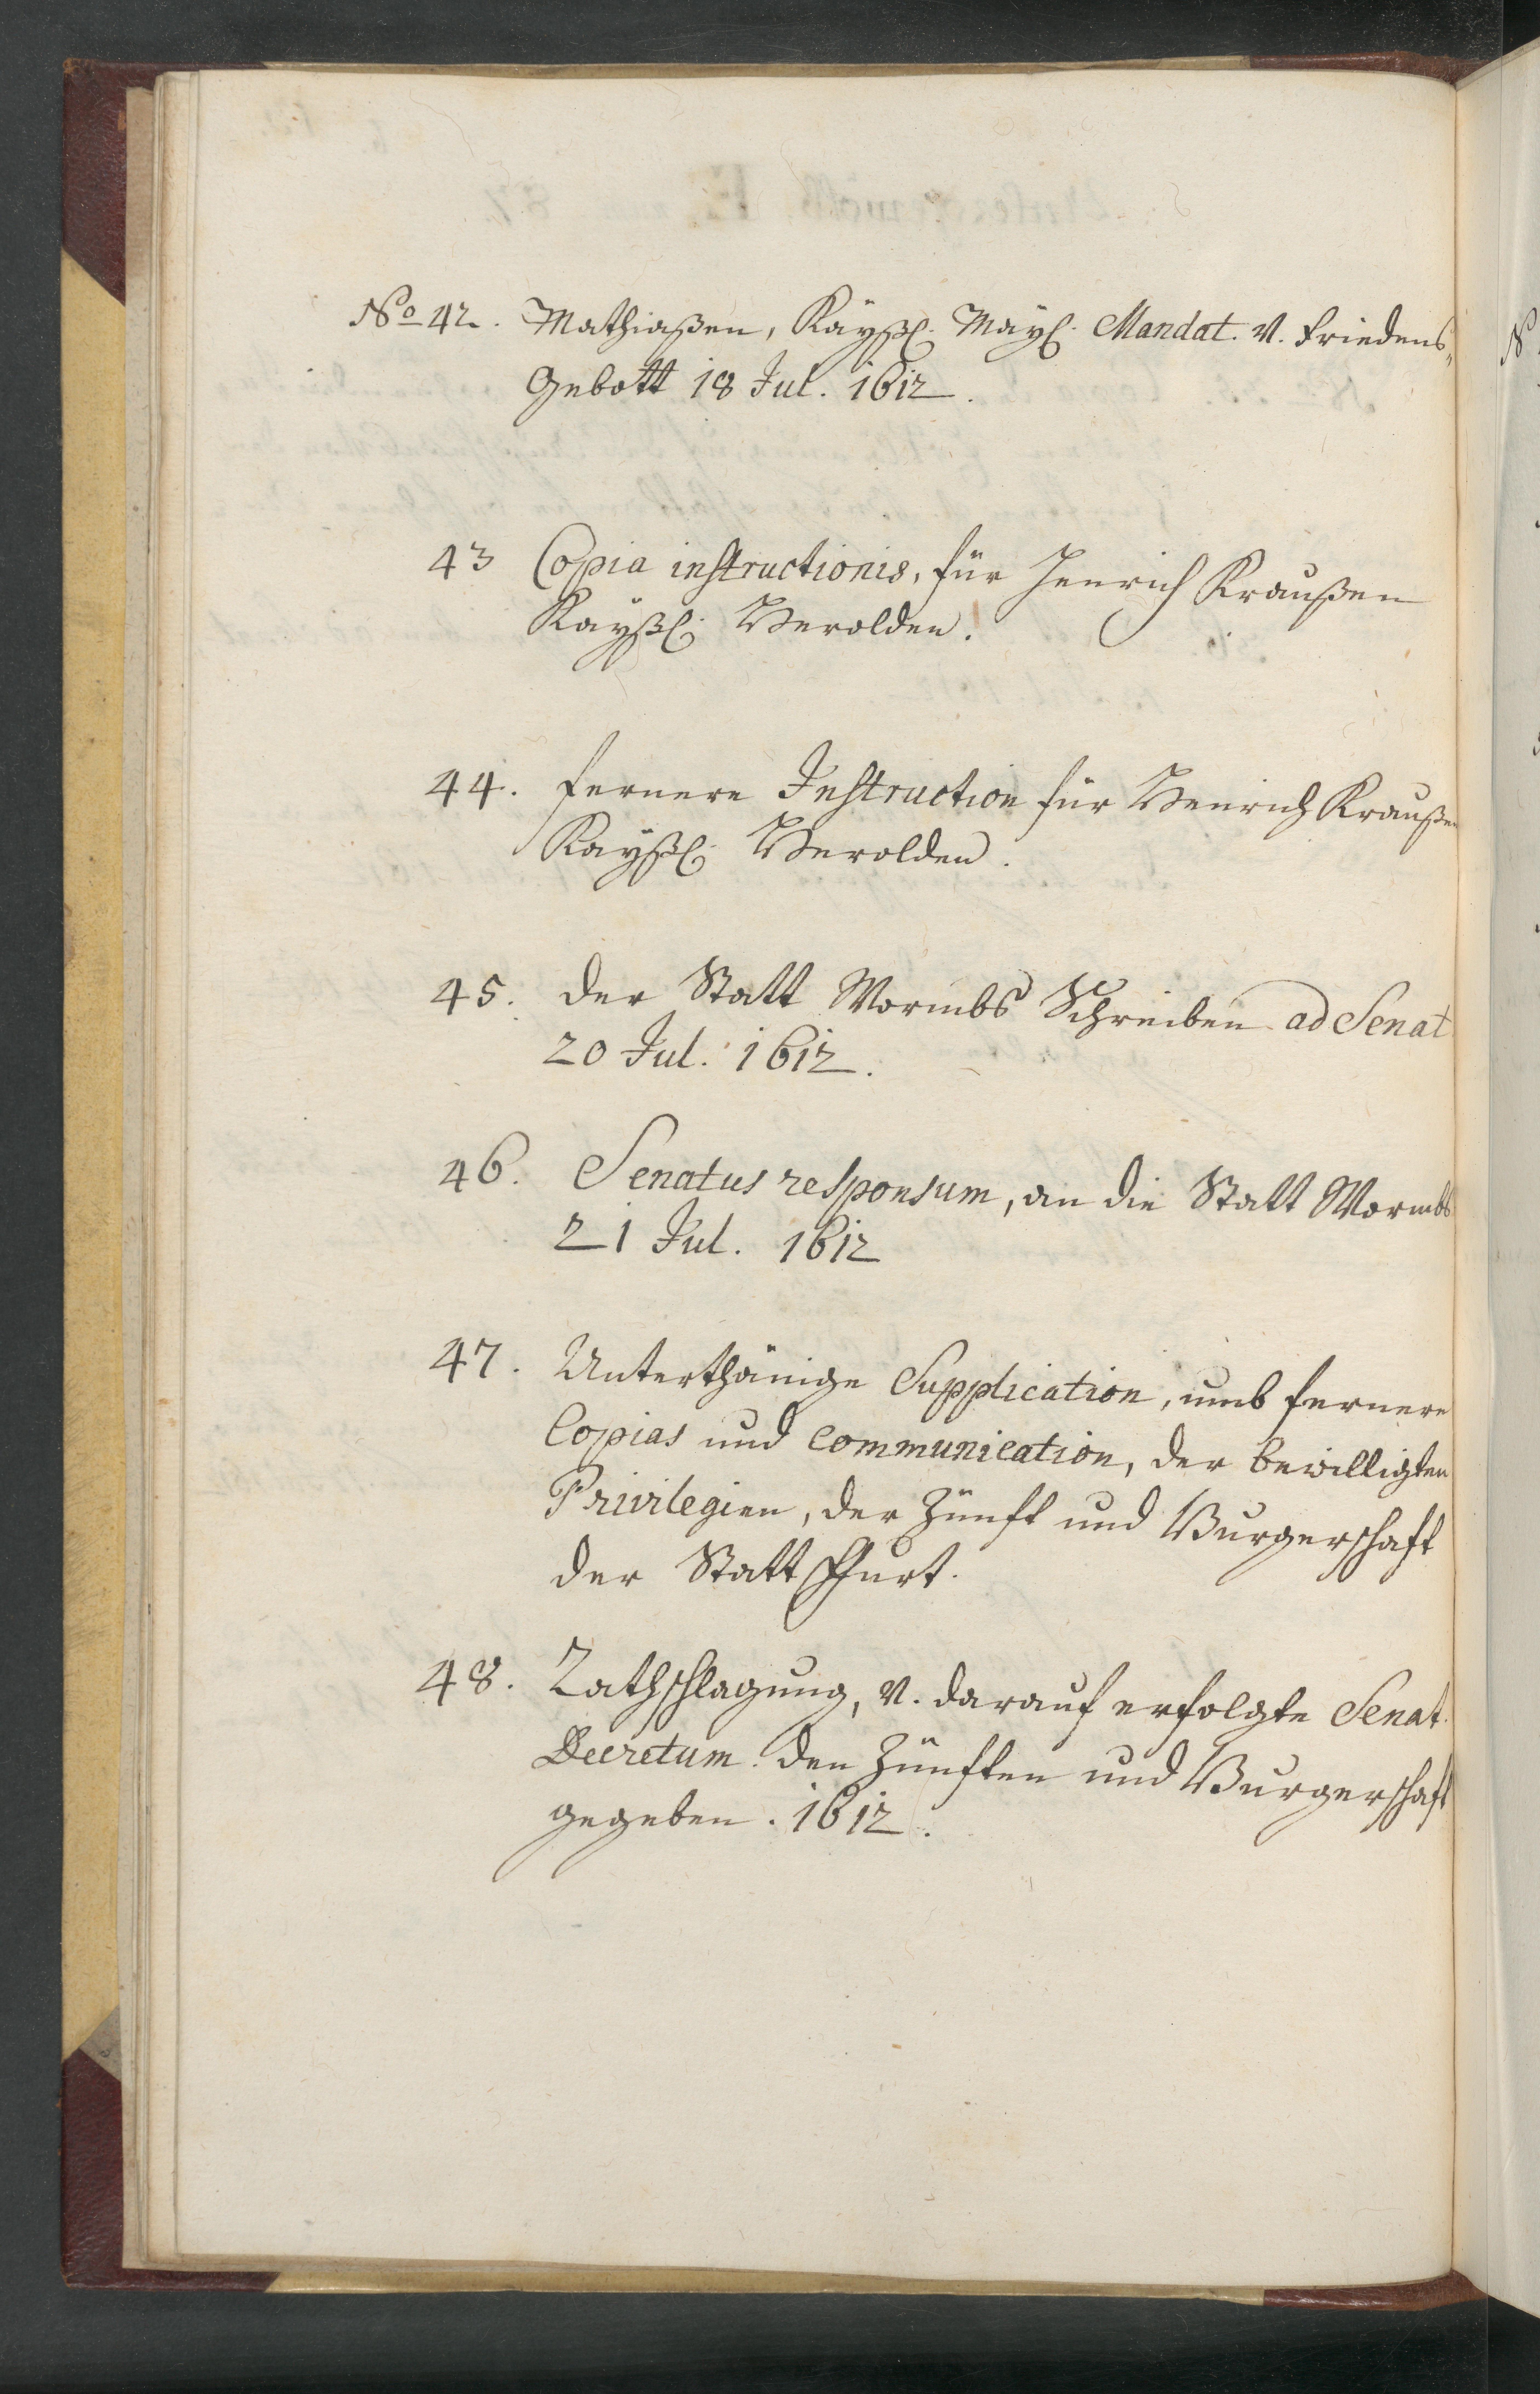 No 42. Mathiaßen, Kayßl. Mayl. Mandat. v. Friedens„
Gebott 18 Jul. 1612.
43 Copia instructionis, für Henrich Kraußen
Kayßl. Herolden.
44. fernere Instruction für Henrich Kraußen
Kayßl. Herolden.
45. der Statt Wormbs Schreiben ad Senat
20 Jul. 1612.
46. Senatus responsum, an die Statt Wormbs
21 Jul. 1612
47. Unterthänige Supplication, umb fernere
Copias und Communication, der bewilligten
Privilegien, der Zünfft und Burgerschafft
der Statt Ffurt.
48. Rathschlagung, v. darauf erfolgte Senat.
Decretum. den Zünfften und Burgerschafft
gegeben. 1612.